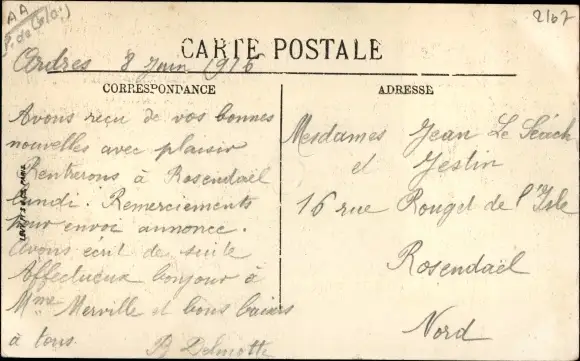 AA
P. de C(10c)
2167
CARTE POSTALE
Ardres 8 Juin 1916
CORRESPONDANCE
Avons reçu de vos bonnes
nouvelles avec plaisir
Rentrerons à Rosendaël
lundi. Remerciements
pour envoi annonce.
Avons écrit de suite
Affectueux bonjour à
Mme Merville et bons baisers
à tous.
B Delmotte
ADRESSE
Mesdames Jean Le Séach
et Jestin
16 rue Rouget de l'Isle
Rosendaël
Nord